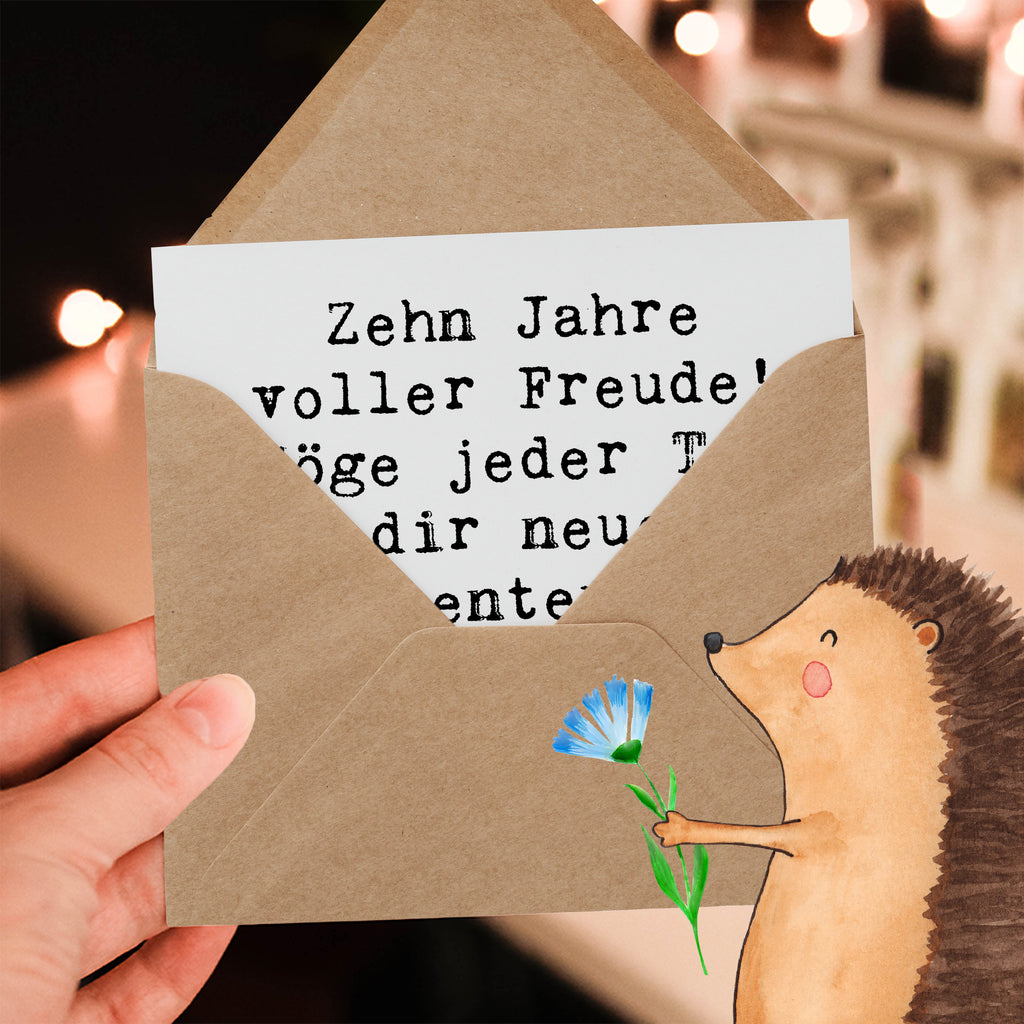 Zehn Jahre
voller Freude!
Möge jeder
dir neue